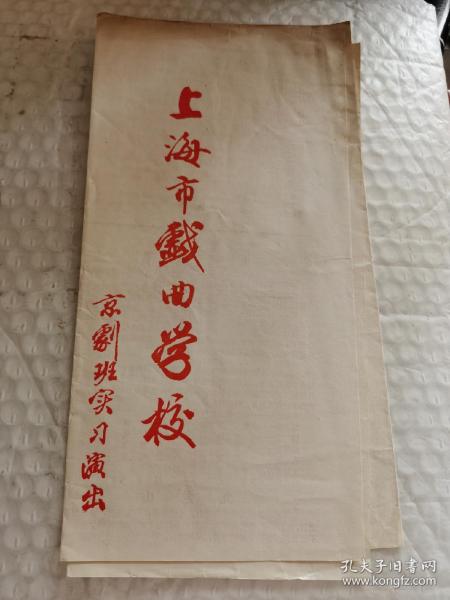 上海市戲曲学校
京劇班实习演出
孔夫子旧书网
www.kongfz.com